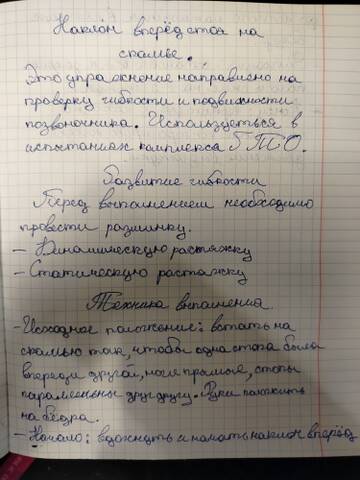 Наклон вперёд стоя на
скамье.
Это упражнение направлено на
проверку гибкости и подвижности
позвоночника. Используеться в
испытаниях комплекса ГТО.
Развитие гибкости
Перед выполнением необходимо
провести разминку.
- Динамическую растяжку
- Статическую растяжку
Техника выполнения
- Исходное положение: встать на
скамью так, чтобы одна стопа была
впереди другой, ноги прямые, стопы
параллельны друг другу. Руки положить
на бёдра.
- Начало: вдохнуть и начать наклон вперёд